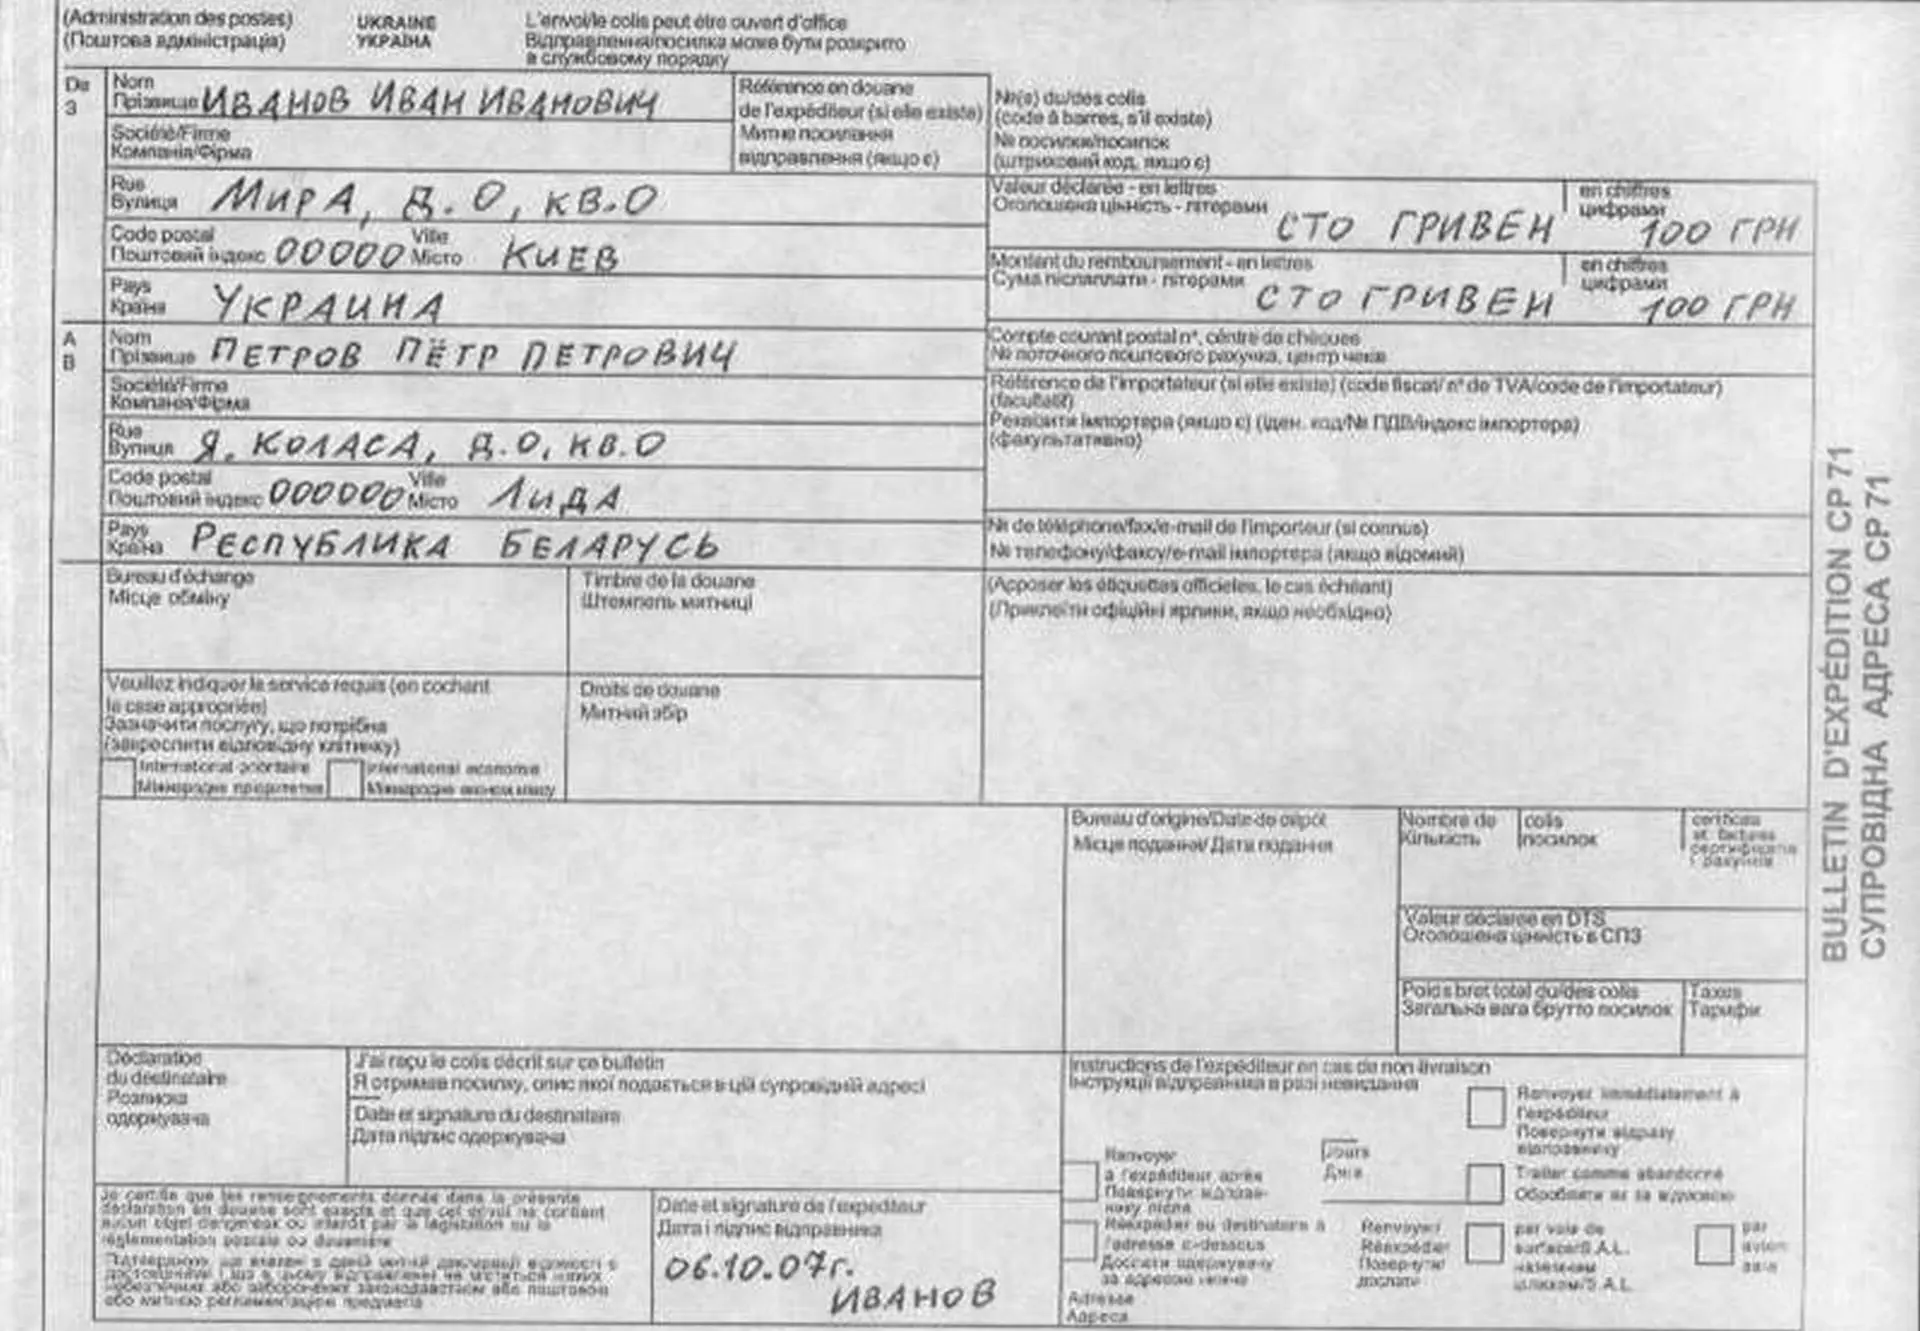 (Administration des postes) UKRAINE L'envoi/le colis peut être ouvert d'office
(Поштова адміністрація) УКРАЇНА Відправлення/посилка може бути розкрито
в службовому порядку
De Nom
З Прізвище ИВАНОВ ИВАН ИВАНОВИЧ
Société/Firme
Компанія/Фірма
Référence en douane
de l'expéditeur (si elle existe)
Митне посилання
відправлення (якщо є)
№(s) du/des colis
(code à barres, s'il existe)
№ посилки/посилок
(штриховий код, якщо є)
Rue
Вулиця МИРА, Д.0, КВ.0
Valeur déclarée - en lettres en chiffres
Оголошена цінність - літерами цифрами
СТО ГРИВЕН 100 ГРН
Code postal Ville
Поштовий індекс 00000 Місто КИЕВ
Montant du remboursement - en lettres en chiffres
Сума післяплати - літерами цифрами
СТО ГРИВЕН 100 ГРН
Pays
Країна УКРАИНА
A Nom
В Прізвище ПЕТРОВ ПЁТР ПЕТРОВИЧ
Compte courant postal n°, centre de chèques
№ поточного поштового рахунка, центр чеків
Société/Firme
Компанія/Фірма
Référence de l'importateur (si elle existe) (code fiscal/ n° de TVA/code de l'importateur)
(facultatif)
Реквізити імпортера (якщо є) (іден. код/№ ПДВ/індекс імпортера)
(факультативно)
Rue
Вулиця Я. КОЛАСА, Д.0, КВ.0
Code postal Ville
Поштовий індекс 000000 Місто ЛИДА
Pays
Країна РЕСПУБЛИКА БЕЛАРУСЬ
№ de téléphone/fax/e-mail de l'importeur (si connus)
№ телефону/факсу/e-mail імпортера (якщо відомий)
Bureau d'échange
Місце обміну
Timbre de la douane
Штемпель митниці
(Apposer les étiquettes officieles, le cas échéant)
(Приклеїти офіційні ярлики, якщо необхідно)
Veuillez indiquer le service requis (en cochant
la case appropriée)
Зазначити послугу, що потрібна
(закреслити відповідну клітинку)
International prioritaire International economie
Droits de douane
Митний збір
Bureau d'origine/Date de dépôt
Місце подання/ Дата подання
Nombre de colis
Кількість посилок
certificats
et factures
сертифікатів
і рахунків
Valeur déclarée en DTS
Оголошена цінність в СПЗ
Poids bret total du/des colis Taxes
Загальна вага брутто посилок Тарифи
Déclaration
du destinataire
Розписка
одержувача
J'ai reçu le colis décrit sur ce bulletin
Я отримав посилку, опис якої подається в цій супровідній адресі
Date et signature du destinataire
Дата підпис одержувача
Instructions de l'expéditeur en cas de non livraison
Інструкції відправника в разі невидання
Renvoyer immédiatement à
l'expéditeur
Повернути відразу
відправнику
Renvoyer
à l'expéditeur après
Повернути відправ-
нику після
Jours
Днів
Traiter comme abandonné
Réexpédier au destinataire à
l'adresse ci-dessous
Дослати одержувачу
за адресою нижче
Renvoyer/
Réexpédier
Повернути/
дослати
par voie de
surface/S.A.L.
наземним
шляхом/S.A.L.
par
avion
авіа
Adresse
Адреса
Je certifie que les renseignements donnés dans la présente
déclaration en douane sont exacts et que cet envoi ne contient
aucun objet dangereux ou interdit par la législation ou la
réglementation postale ou douanière
Date et signature de l'expéditeur
Дата і підпис відправника
06.10.07г.
ИВАНОВ
BULLETIN D'EXPÉDITION CP 71
СУПРОВІДНА АДРЕСА CP 71